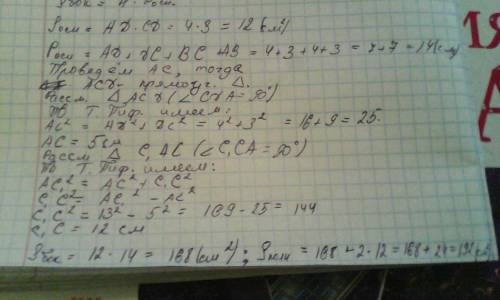 Sбок = H · Pосн.
Sосн = AD · CD = 4 · 3 = 12 (см²)
Pосн = AD + DC + BC + AB = 4+3+4+3 = 7+7 = 14 (см)
Проведём AC, тогда
ACD - прямоуг. Δ.
Рассм. Δ ACD (∠CDA = 90°)
По Т. Пиф. имеем:
AC² = AD² + DC² = 4² + 3² = 16 + 9 = 25.
AC = 5 см
Рассм Δ C₁AC (∠C₁CA = 90°)
По Т. Пиф. имеем:
AC₁² = AC² + C₁C²
C₁C² = AC₁² - AC²
C₁C² = 13² - 5² = 169 - 25 = 144
C₁C = 12 см
Sбок = 12 · 14 = 168 (см²); Sполн = 168 + 2 · 12 = 168 + 24 = 192 (см²)